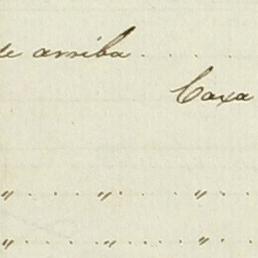 de arriba . . . .
Caxa
" . . . . " . . . . " . . .
" . . . . " . . . . " . . .